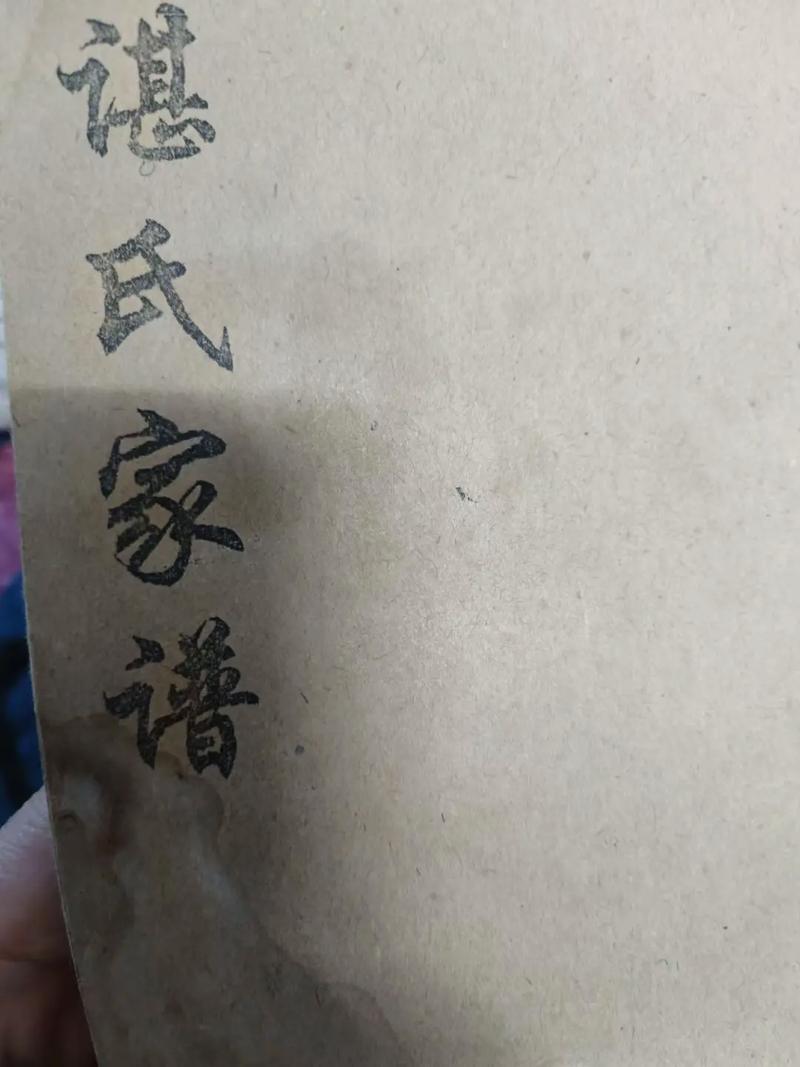 谌氏家谱